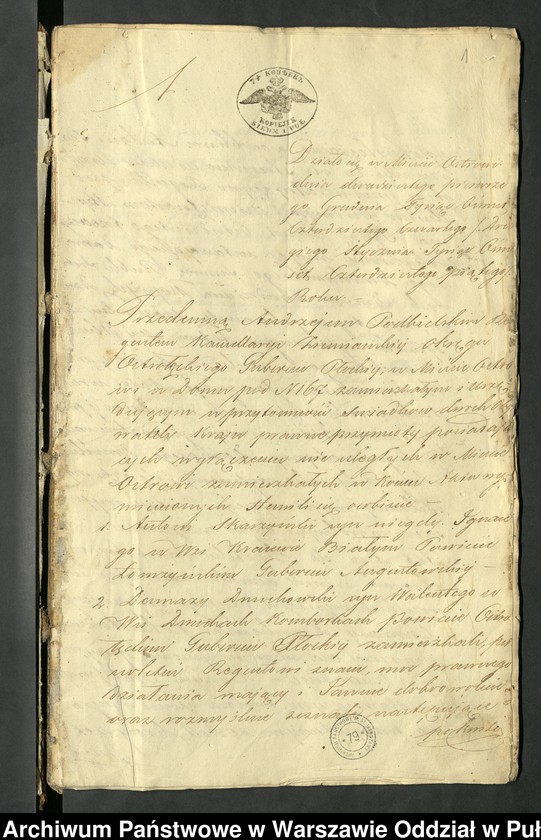 1
7½ КОПѢЕКЪ
KOPIEJEK
SIEDM I PÓŁ
Działo się w Mieście Ostrowi
dnia dwudziestego pierwsze-
go Grudnia Tysiąc Ośmset
Czterdziestego Czwartego /: Dru-
giego Stycznia Tysiąc Ośm-
set Czterdziestego piątego
Roku.
Przedemną Andrzejem Podbielskim Re-
gentem Kancellaryi Ziemiańskiej Okręgu
Ostrołęckiego Gubernii Płockiej, w Mieście Ostro-
wi w Domu pod N 167 zamieszkałym i urzę-
dującym w przytomności Świadków dwóch Oby-
wateli Kraju prawne przymioty posiadają-
cych wyłączeniu nie uległych w Mieście
Ostrowi zamieszkałych w końcu Aktu wy-
mienionych Stawili się osobiście
1. Antoni Skarzyński syn niegdy Ignace-
go w Wsi Krajewie Białym Powiecie
Łomżyńskim Gubernii Augustowskiej
2. Damazy Zmichowski syn Walentego w
Wsi Zmochach powiecie Ostro-
łęckim Gubernii Płockiej zamieszkali, peł-
noletni Regentowi znani, moc prawnego
działania mający i Jawnie dobrowolnie
oraz rozmyślnie zeznali następujące
79
Archiwum Państwowe w Warszawie Oddział w Puł